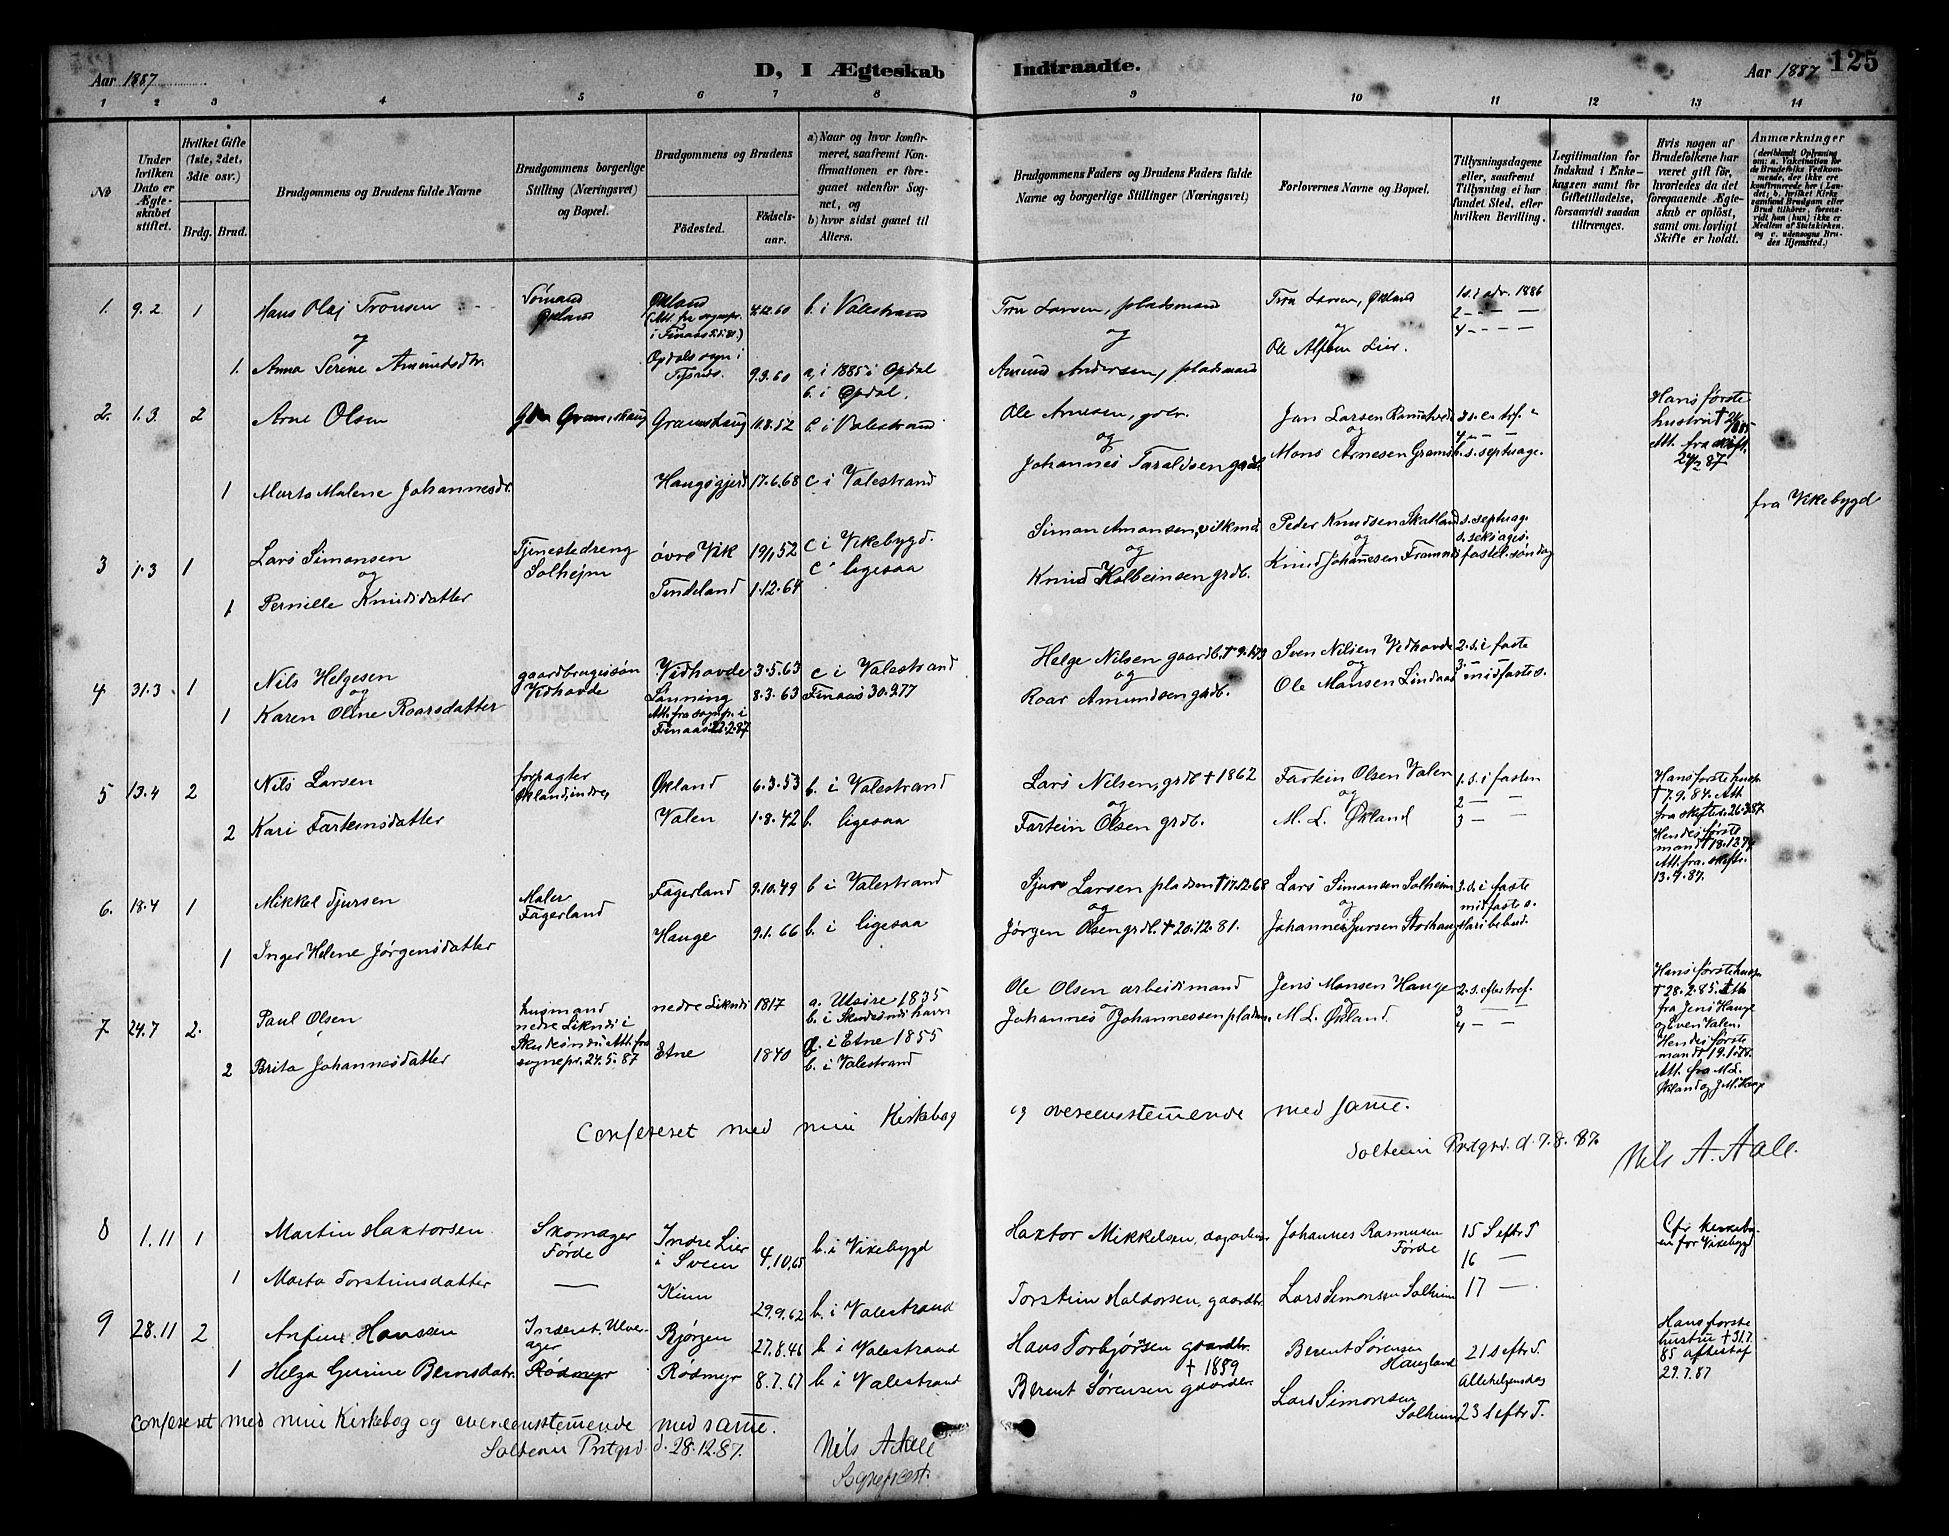 Aar 1887
D, I Ægteskab
Indtraadte.
Aar 1887
125
1 2 3 4 5 6 7 8 9 10 11 12 13 14
No
Under hvilken Dato er Ægteskabet stiftet.
Hvilket Gifte (1ste, 2det, 3die osv.)
Brdg. Brud.
Brudgommens og Brudens fulde Navne
Brudgommens borgerlige Stilling (Næringsvei) og Bopæl.
Brudgommens og Brudens
Födested.
Födselsaar.
a) Naar og hvor konfirmeret, saafremt Konfirmationen er foregaaet udenfor Sognet, og
b) hvor sidst gaaet til Alters.
Brudgommens Faders og Brudens Faders fulde Navne og borgerlige Stillinger (Næringsvei)
Forlovernes Navne og Bopæl.
Tillysningsdagene eller, saafremt Tillysning ei har fundet Sted, efter hvilken Bevilling.
Legitimation for Indskud i Enkekassen samt for Giftetilladelse, forsaavidt saadan tiltrænges.
Hvis nogen af Brudefolkene har været gift för, hvorledes da det foregaaende Ægteskab er oplöst, samt om lovligt Skifte er holdt.
Anmærkninger
(deriblandt Oplysning om: a. Vakcination for de Brudefolks Vedkommende, der ikke ere konfirmerede her i Landet; b. hvilket Kirkesamfund Brudgom eller Brud tilhörer, forsaavidt han (hun) ikke er Medlem af Statskirken. og c. udensogns Brudes Hjemsted.)
1. 9.2 1 Hans Olaj Tronsen Sømand Økland Økland (Att. fra sognepr. i Finaas 5.2.81.) 4.12.60 b. i Valestrand Tron Larsen, pladsmand Tron Larsen, Økland 1 s. i adv. 1886
og og 2 – – –
4 – – –
1. Anna Serine Amundsdtr. Opdals sogn i Tysnes. 9.3.60 a, i 1885 i Opdal b. i Opdal. Amund Andersen, pladsmand Ole Alfsen Lier.
2. 1.3 2 Arne Olsen Gramshaug 11.8.52 b. i Valestrand Ole Arnesen, gbr. Jan Larsen 3 s. e. tref.
og og 4 – – –
Hans første hustru † Att. fra skift. 24/2 87
1 Marta Malene Johannesdr. Haugsgjerd 17.6.68 c i Valestrand Johannes Taraldsen Mons Arnesen s. septuage.
fra Vikebygd
3 1.3 1 Lars Simonsen Tjenestedreng Solhejm øvre Vik 19/1 52 c i Vikebygd. Simon Amonsen, Peder Knudsen Skatland s. septuag.
og og og s. seksages.
1 Pernille Knudsdatter Tindeland 1.12.64 c ligesaa Knud Holbeinsen grdb. Knud Johannesen Framnes fastel. søndag
4. 31.3 1 Nils Helgesen gaardbrugersøn Vidhovde Vidhovde 3.5.63 c i Valestrand Helge Nilsen gaardb. Sven Nilsen Vidhovde 2. s. i faste
og og og 3. –
1 Karen Oline Roarsdatter Sønning Att. fra sognepr. i Finaas 22.2.87 8.3.63 Finaas 30.9.77 Roar Amundsen grdb. Ole Monsen Lindaas midfastes.
5 13.4 2 Nils Larsen forpagter Økland, indre, Økland 6.3.53 b. i Valestrand Lars Nilsen, grdb † 1862 Fartein Olsen Valen 1. s. i fasten
og og 2 – –
2 Kari Farteinsdatter Valen 1.8.42 b. ligesaa Fartein Olsen grdb. M. L. Økland 3 – –
Hans første hustr. † 7.9.84. Att. fra skifter. 26.3.87. Hendes første mand † Att. fra skifter. 13.4.87.
6. 18.4 1 Mikkel Sjursen Maler Fagerland Fagerland 9.10.49 b i Valestrand Sjur Larsen pladsm † 17.12.68 Lars Simonsen Solheim 3. s. i faste
og og midfastes.
1 Inger Helene Jørgensdatter Hauge 9.1.66 b. i ligesaa Jørgen Olsen grdb. † 20.12.81. Johannes Sjursen Storhaug Mari bebud.
7. 24.7 2. Paul Olsen husmand nedre Liknes i Skudesnes Att. fra sognepr. 24.5.87 nedre Liknes 1817 a. Utsire 1835 b. i Skudesneshavn Ole Olsen arbeidsmand Jens Monsen Hauge 2. s. efter tref.
og 3 – –
2 Brita Johannesdatter Etne 1840 a. i Etne 1855 b. i Valestrand Johannes Johannessen pladsm. M. L. Økland 4 – –
Hans første hustr. † 28.2.85. Att. fra Jens Hauge og Sven Valen. Hendes første mand † Att. fra M. L. Økland og J. M. Hauge
Confereret med min Kirkebog og overeensstemmende med samme.
Solheim Prstgrd. d. 7.8.87. Nils A. Aall.
8 1.11 1 Martin Haktorsen Skomager Førde Indre Lier i Sveen 4.10.65 b. i Vikebygd Haktor Mikkelsen, dagarbeider Johannes Rasmussen Førde 15 S eftr T
16 –
Cfr. kirkebogen for Vikebygd
1 Marta Torsteinsdatter — 29.9.62 b. i Valestrand Torstein Haldorsen, gaardbr. Lars Simonsen Solheim 17 –
9 28.11 2 Anfinn Hanssen Bjørgen 27.8.46 b i Valestrand Hans Torbjørsen gaardbr. † 1859 Berent Sørensen Haugland 21 S eftr T.
Allehelgensdag
Hans første hustru † 31.7.85 29.7.87
1 Helga Gurine Berntsdatr. Rødmyr Rødmyr 8.7.67 b i Valestrand Berent Sørensen gaardbr. Lars Simonsen Solheim 23 S eftr T.
Confereret med min Kirkebog og overeensstemmende med samme.
Solheim Prstgrd. d. 28.12.87. Nils A Aall
Sognepræst.